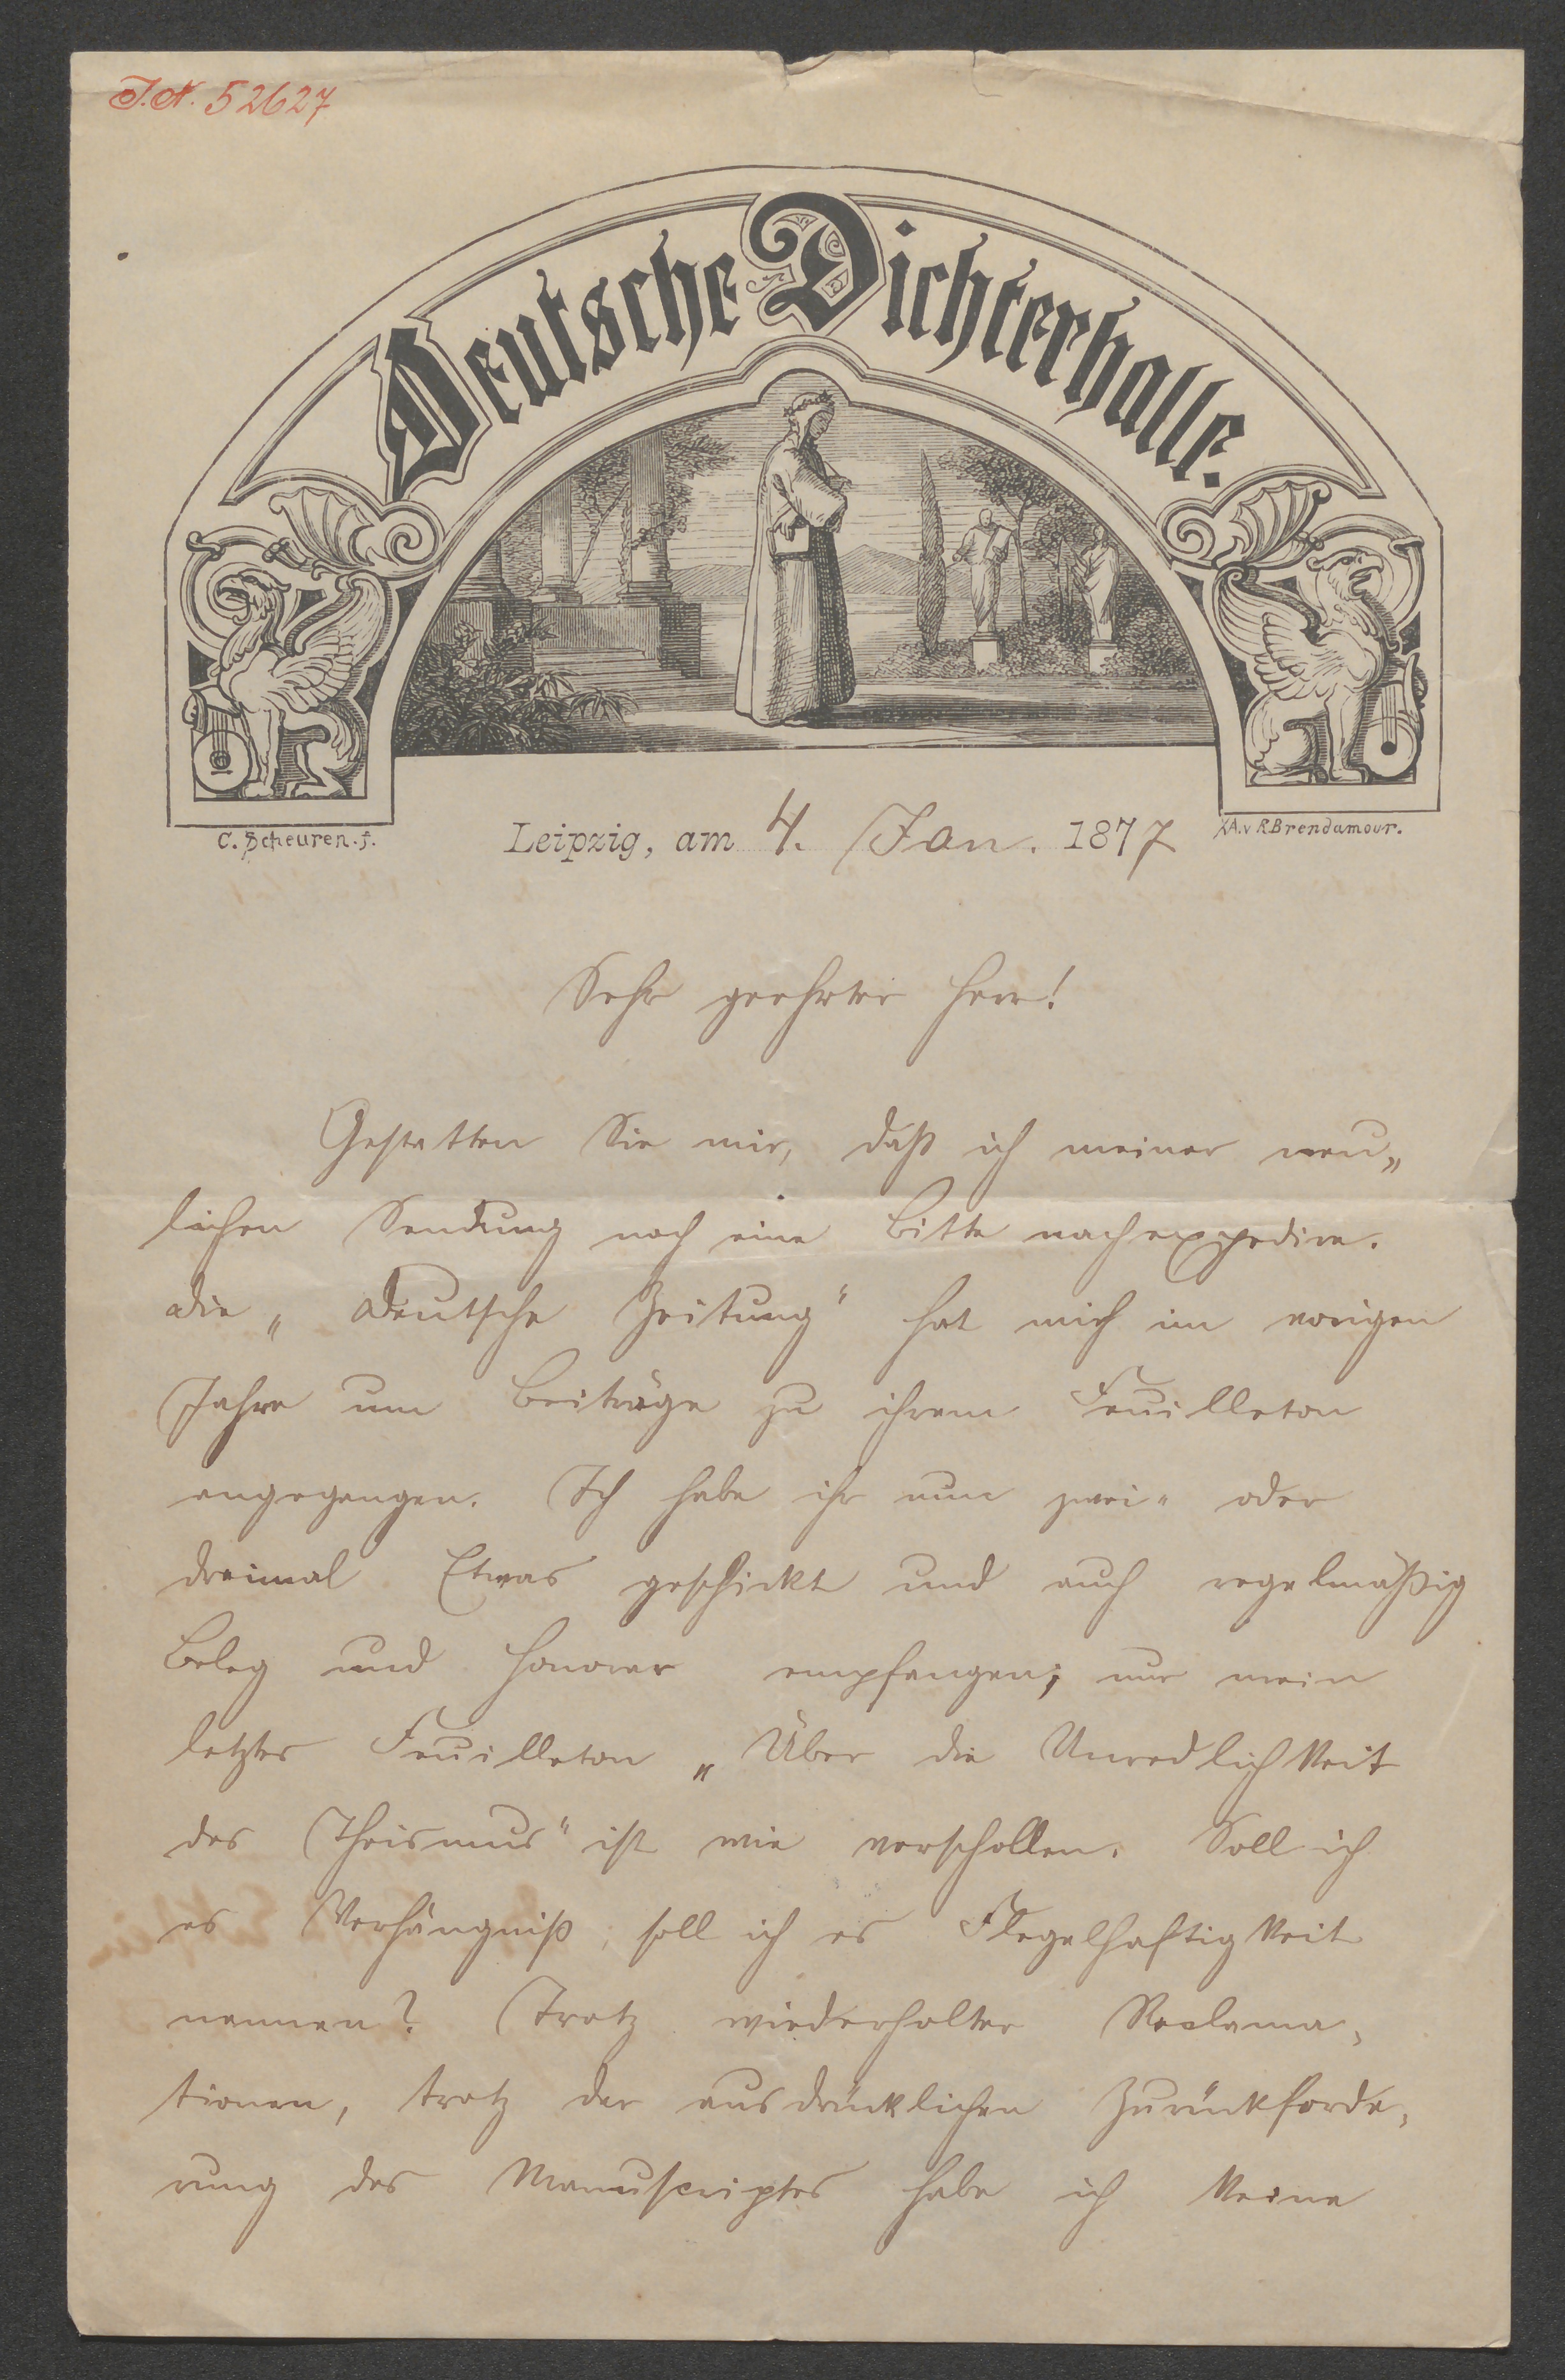 J.N. 52627
Deutsche Dichterhalle.
C. Scheuren. f.
X.A.v R.Brendamour.
Leipzig, am 4. Jan. 1877
Sehr geehrter Herr!
Gestatten Sie mir, daß ich meiner neu„
lichen Sendung noch eine Bitte nachexpedire.
Die „Deutsche Zeitung“ hat mich im vorigen
Jahre um Beiträge zu ihrem Feuilleton
angegangen. Ich habe ihr nun zwei- oder
dreimal Etwas geschickt und auch regelmäßig
Beleg und Honorar empfangen; nur mein
letztes Feuilleton „Über die Unredlichkeit
des Theismus“ ist wie verschollen. Soll ich
es Verhängniß, soll ich es Flegelhaftigkeit
nennen? Trotz wiederholter Reclama„
tionen, trotz der ausdrücklichen Zurückforde„
rung des Manuscriptes habe ich keine